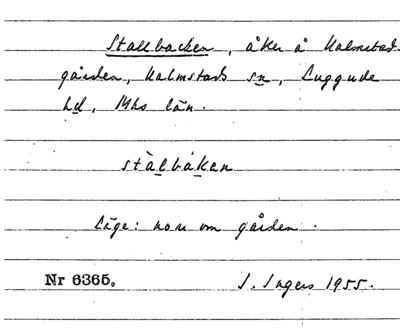 Stallbacken, åker å Kalmstad-
gården, Kalmstads sn, Luggude
hd, Mhs län.
stàlbákan
Läge: norr om gården.
Nr 6365. I. Ingers 1955.